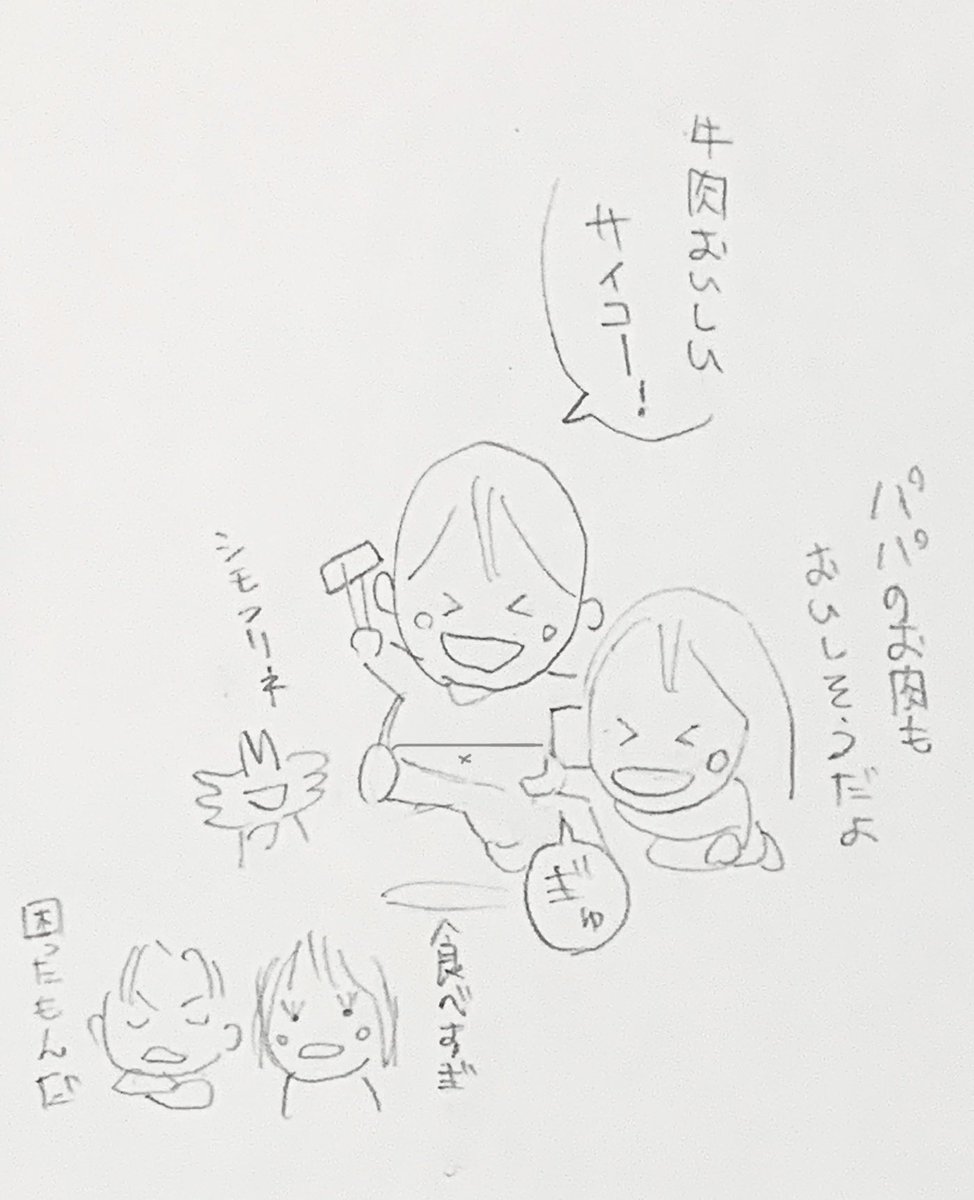 牛肉おいしい
サイコー!
パパのお肉も
おいしそうだよ
シモフリネ
ぎゅ
食べすぎ
困ったもんだ